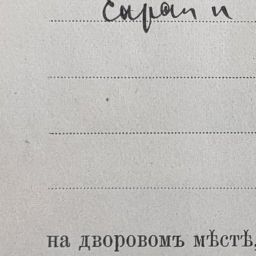 сарай и
на дворовомъ мѣстѣ,